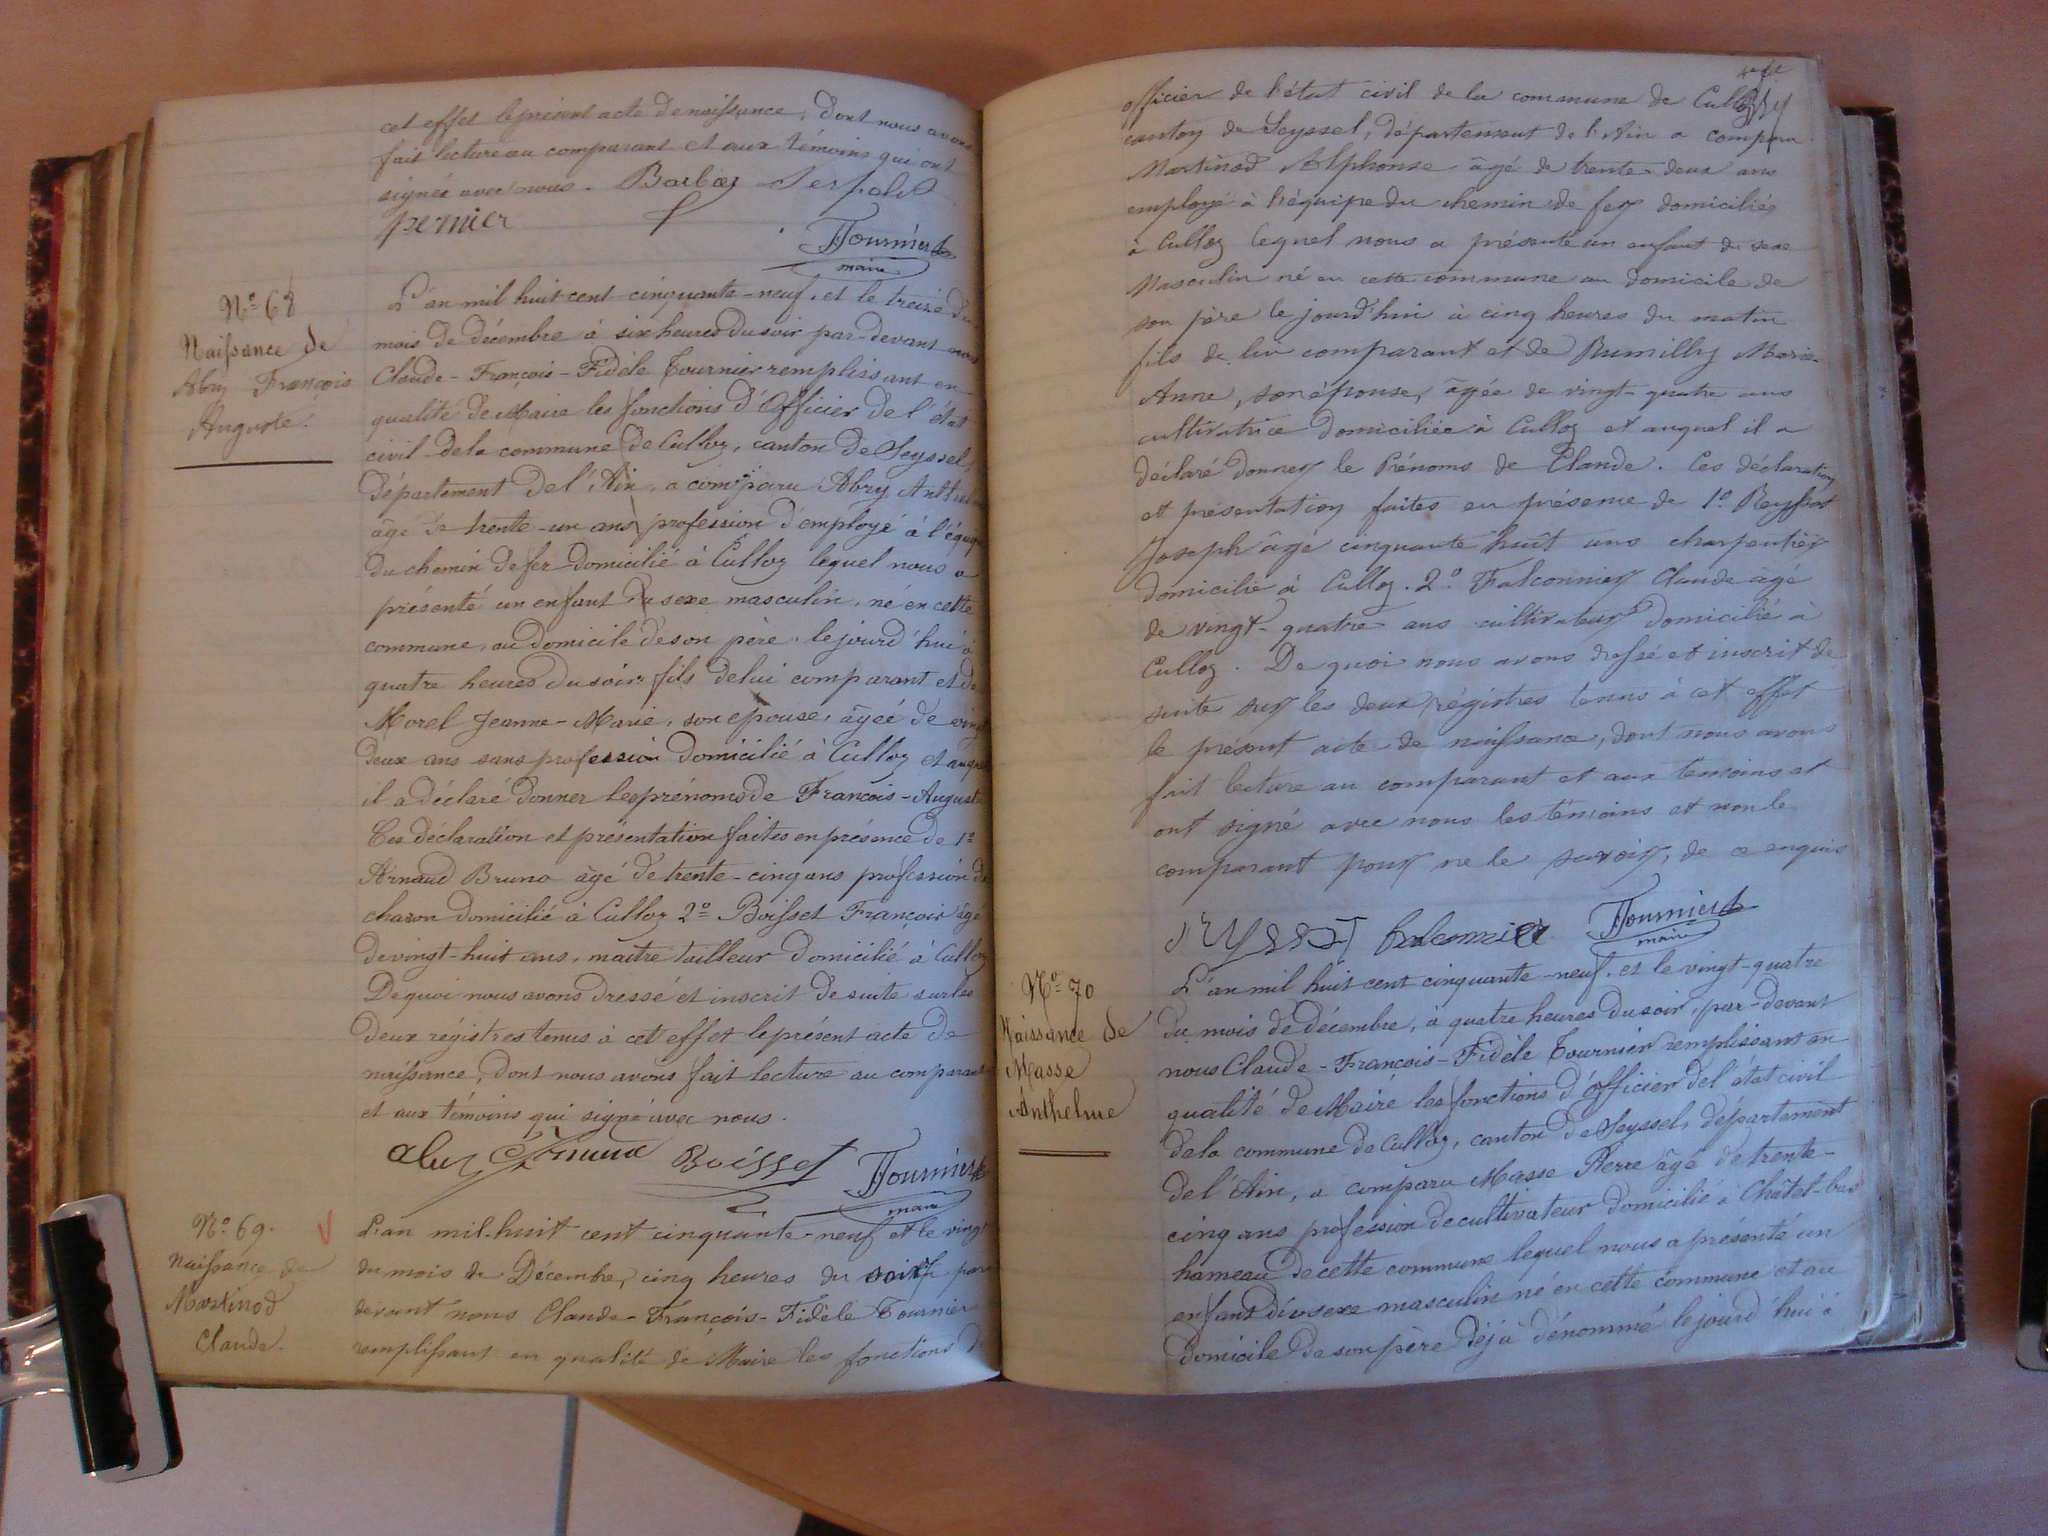 cet effet le présent acte de naissance, dont nous avons
fait lecture au comparant et aux témoins qui ont
signés avec nous. Barbaz Serpolet
pernier
Tournier
maire
N° 68
Naissance de
Abry François
Auguste.
L'an mil huit cent cinquante-neuf, et le treize du
mois de décembre à six heures du soir par-devant nous
Claude-François-Fidèle Tournier remplissant en
qualité de Maire les fonctions d'Officier de l'état
civil de la commune de Culloz, canton de Seyssel,
département de l'Ain, a comparu Abry
âgé de trente-un ans profession d'employé à l'équipe
du chemin de fer domicilié à Culloz lequel nous a
présenté un enfant du sexe masculin, né en cette
commune, au domicile de son père, le jourd'hui à
quatre heures du soir fils de lui comparant et de
Morel Jeanne-Marie, son epouse, âgée de vingt
deux ans sans profession domicilié à Culloz et auquel
il a déclaré donner les prénoms de François-Auguste
Ces déclaration et présentation faites en présence de 1°
Arnaud Bruno âgé de trente-cinq ans profession de
charon domicilié à Culloz 2° Boisset François âgé
de vingt-huit ans, maitre tailleur domicilié à Culloz
De quoi nous avons dressé et inscrit de suite sur les
deux régistres tenus à cet effet le présent acte de
naissance, dont nous avons fait lecture au comparant
et aux témoins qui signé avec nous.
abry Arnaud Boisset Tournier
maire
N° 69.
Naissance de
Martinod
Claude.
L'an mil-huit cent cinquante-neuf et le vingt
du mois de Décembre, cinq heures du soir par
devant nous Claude-François-Fidèle Tournier
remplissant en qualité de Maire les fonctions d'
officier de l'état civil de la commune de Culloz
canton de Seyssel, département de l'Ain a comparu
Martinod Alphonse âgé de trente-deux ans
employé à l'équipe du chemin de fer domiciliés
à Culloz lequel nous a présenté un enfant du sexe
Masculin né en cette commune au domicile de
son père le jourd'hui à cinq heures du matin
fils de lui comparant et de Rumilly Marie-
Anne, son épouse, âgée de vingt-quatre ans
cultivatrice domiciliée à Culloz et auquel il a
déclaré donner le Prénoms de Claude. Ces déclaration
et présentation faites en présence de 1°. Reyssat
Joseph âgé cinquante huit ans charpentier
domicilié à Culloz. 2° Falconnier Claude âgé
de vingt-quatre ans cultivateur domicilié à
Culloz. De quoi nous avons dressé et inscrit de
suite sur les deux régistres tenus à cet effet
le présent acte de naissance, dont nous avons
fait lecture au comparant et aux temoins et
ont signé avec nous les témoins et non le
comparant pour ne le savoir, de ce enquis
Tournier
maire
N° 70
Naissance de
Masse
Anthelme
L'an mil huit cent cinquante-neuf, et le vingt-quatre
du mois de décembre, à quatre heures du soir, par-devant
nous Claude-François-Fidèle Tournier remplissant en
qualité de Maire les fonctions d'officier de l'état civil
de la commune de Culloz, canton de Seyssel, département
de l'Ain, a comparu Masse Pierre âgé de trente-
cinq ans profession de cultivateur domicilié à Châtel-bas
hameau de cette commune lequel nous a présenté un
enfant du sexe masculin né en cette commune et au
domicile de son père déjà dénommé le jourd'hui à